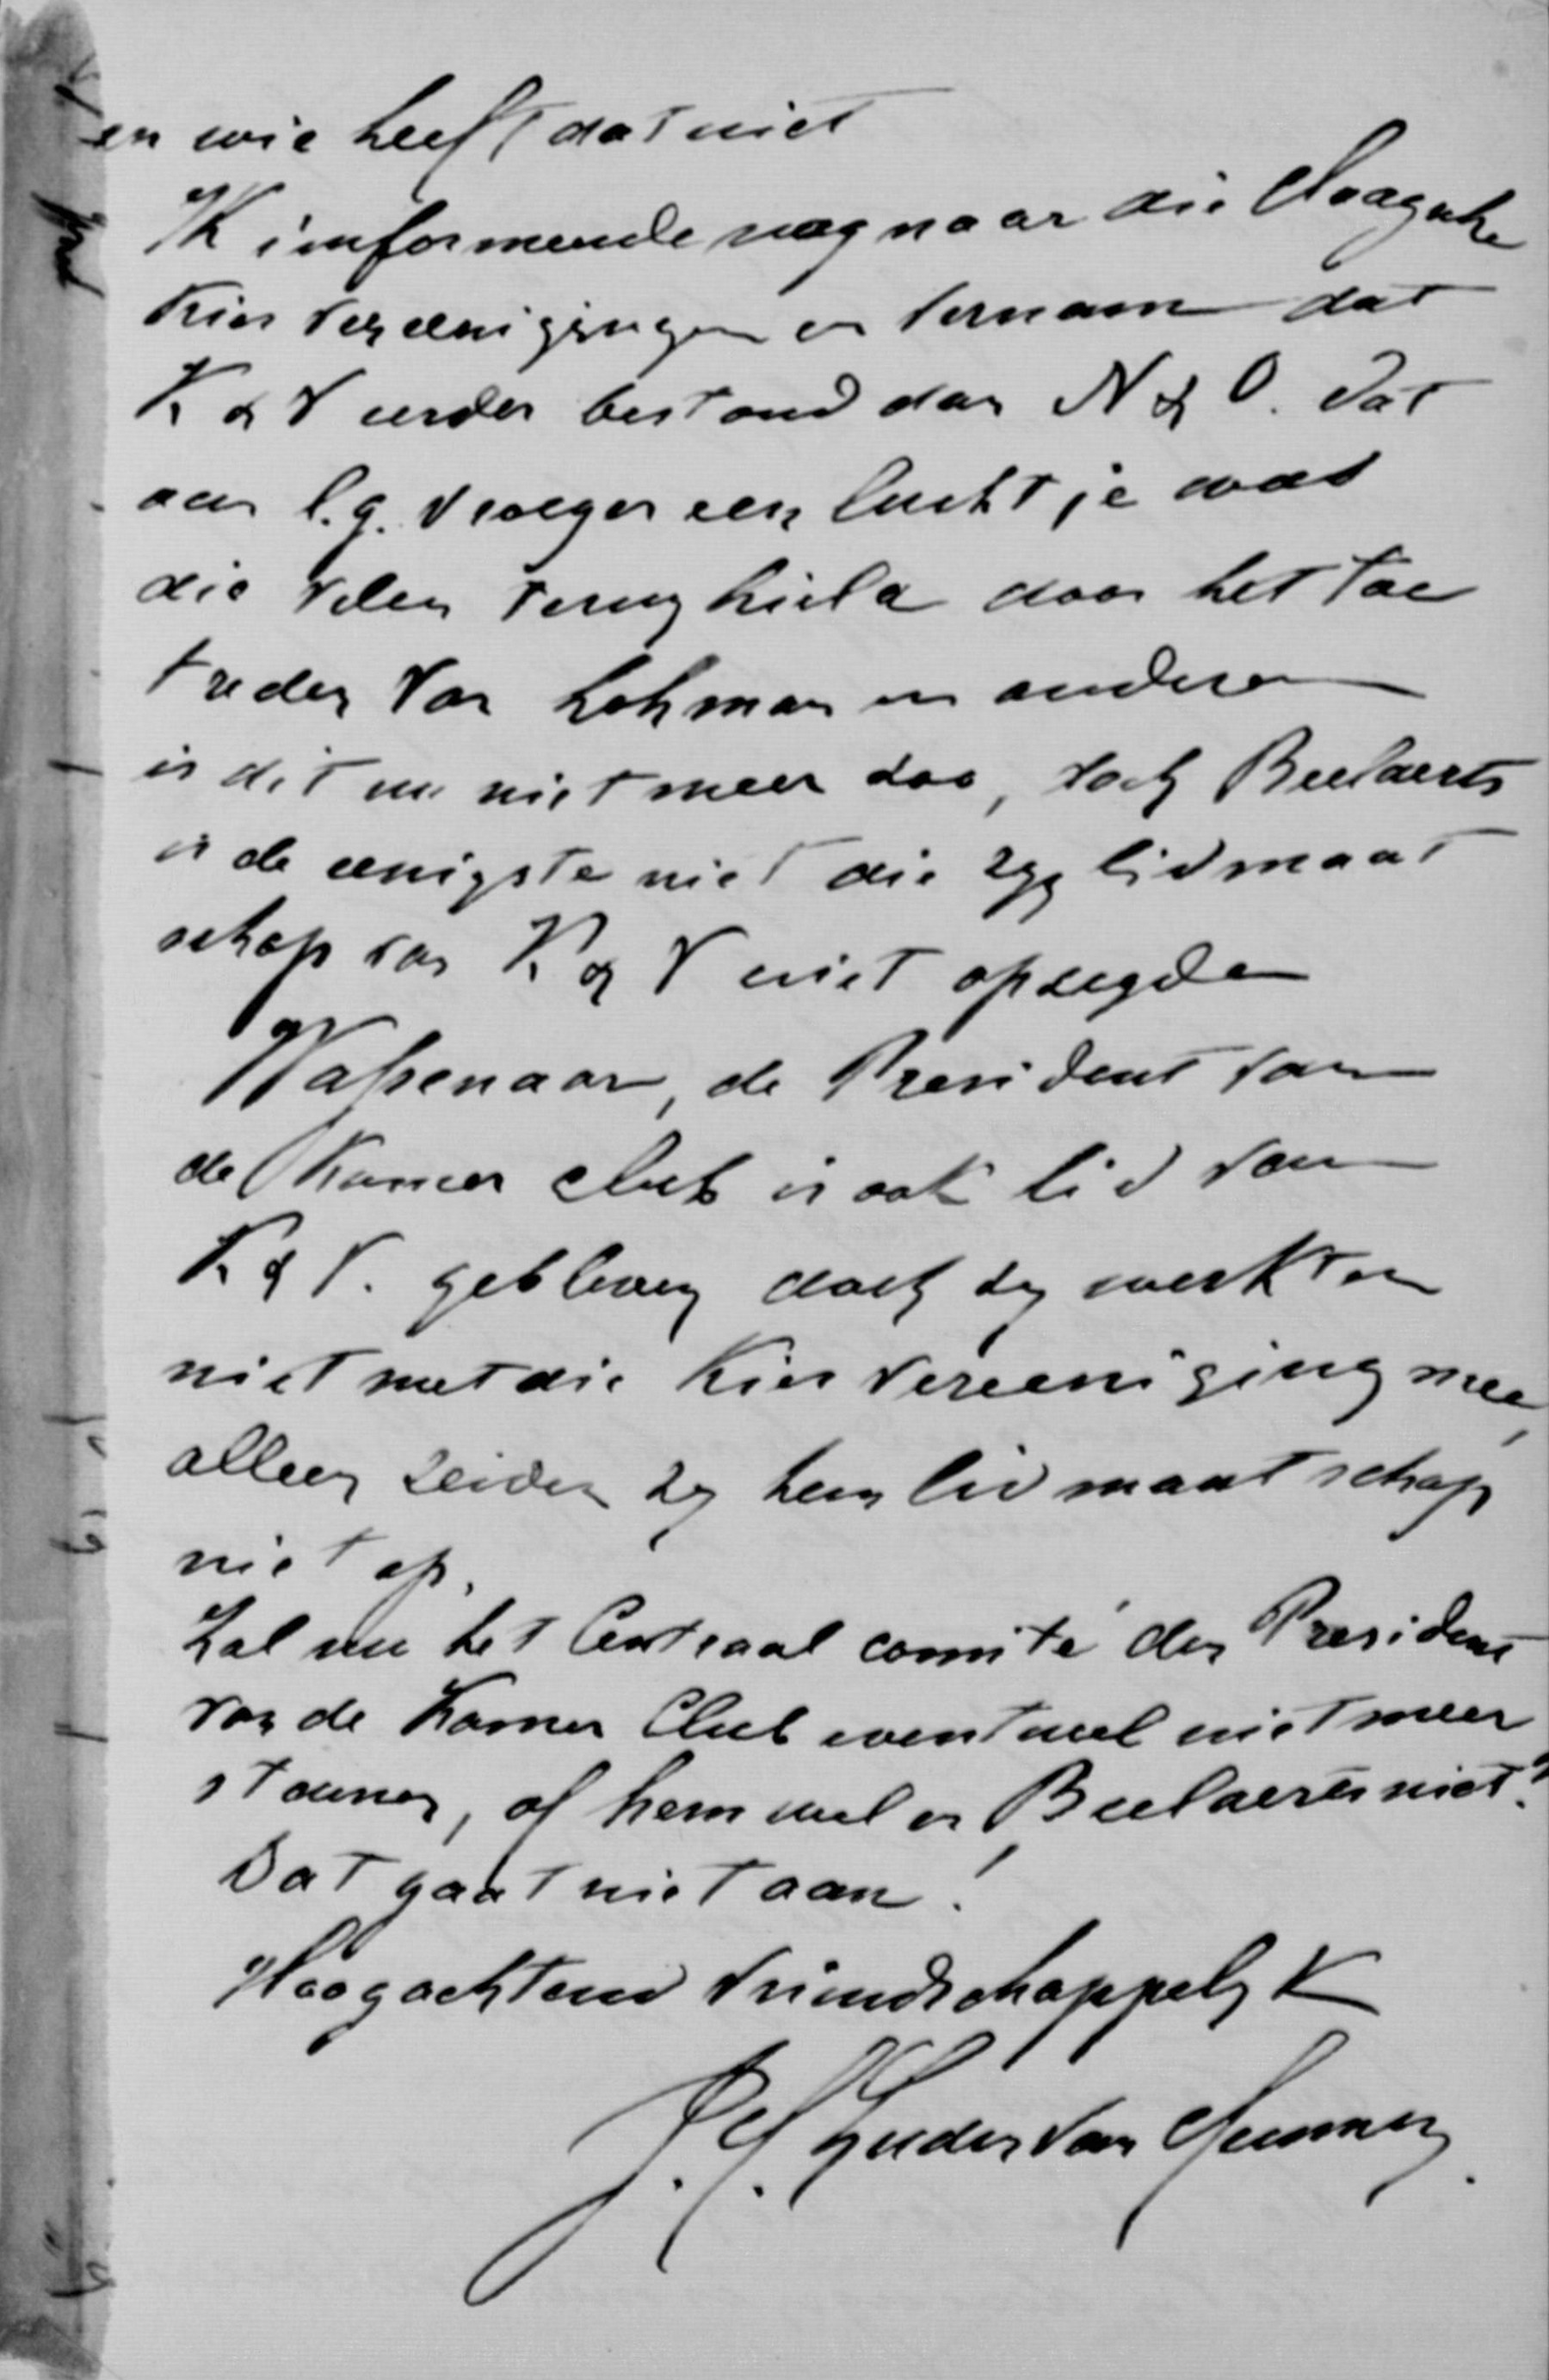 en wie heeft dat niet
Ik informeerde nog naar die Haagsche
Kies Vereenigingen en vernam dat
K & V eerder bestond dan N & O. dat
aan l.g. vroeger een luchtje was
die velen terug hield door het toe
treden van Lohman en anderen
is dit nu niet meer zoo, doch Beelaerts
is de eenigste niet die zyn lidmaat
schap van K & V niet opzegde
Wassenaar, de President van
de Kamer club is ook lid van
K & V. gebleven doch zy werkten
niet met die Kies Vereeniging mee,
alleen zeiden zy hun lidmaatschap
niet op.
Zal nu het Centraal comité den President
van de Kamer Club eventueel niet meer
steunen, of hem wel en Beelaerts niet?
Dat gaat niet aan!
Hoogachtend Vriendschappelyk